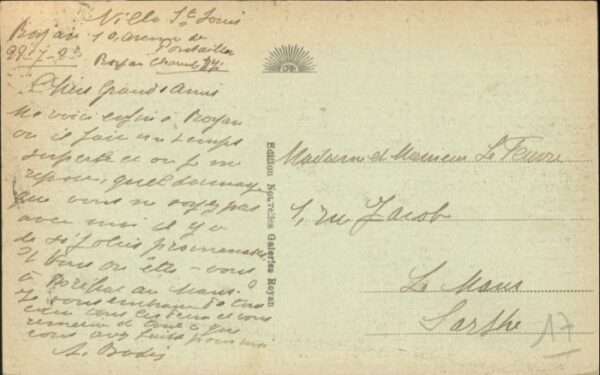 Villa St Louis
Royan 10, avenue de
Pontaillac
Royan
Chers Grands Amis
Me voici enfin à Royan
où il fait un temps
superbe et où je me
repose, quel dommage
que vous ne soyez pas
avec moi il y a
de si jolies promenades
vous ou êtes-vous
au Mans
Je vous embrasse de tout
cœur tous les deux et vous
remercie de tout ce que
vous avez fait pour moi
Edition Nouvelles Galeries Royan
Madame et Monsieur Le Feuvre
1, rue Jacob
Le Mans
Sarthe
17